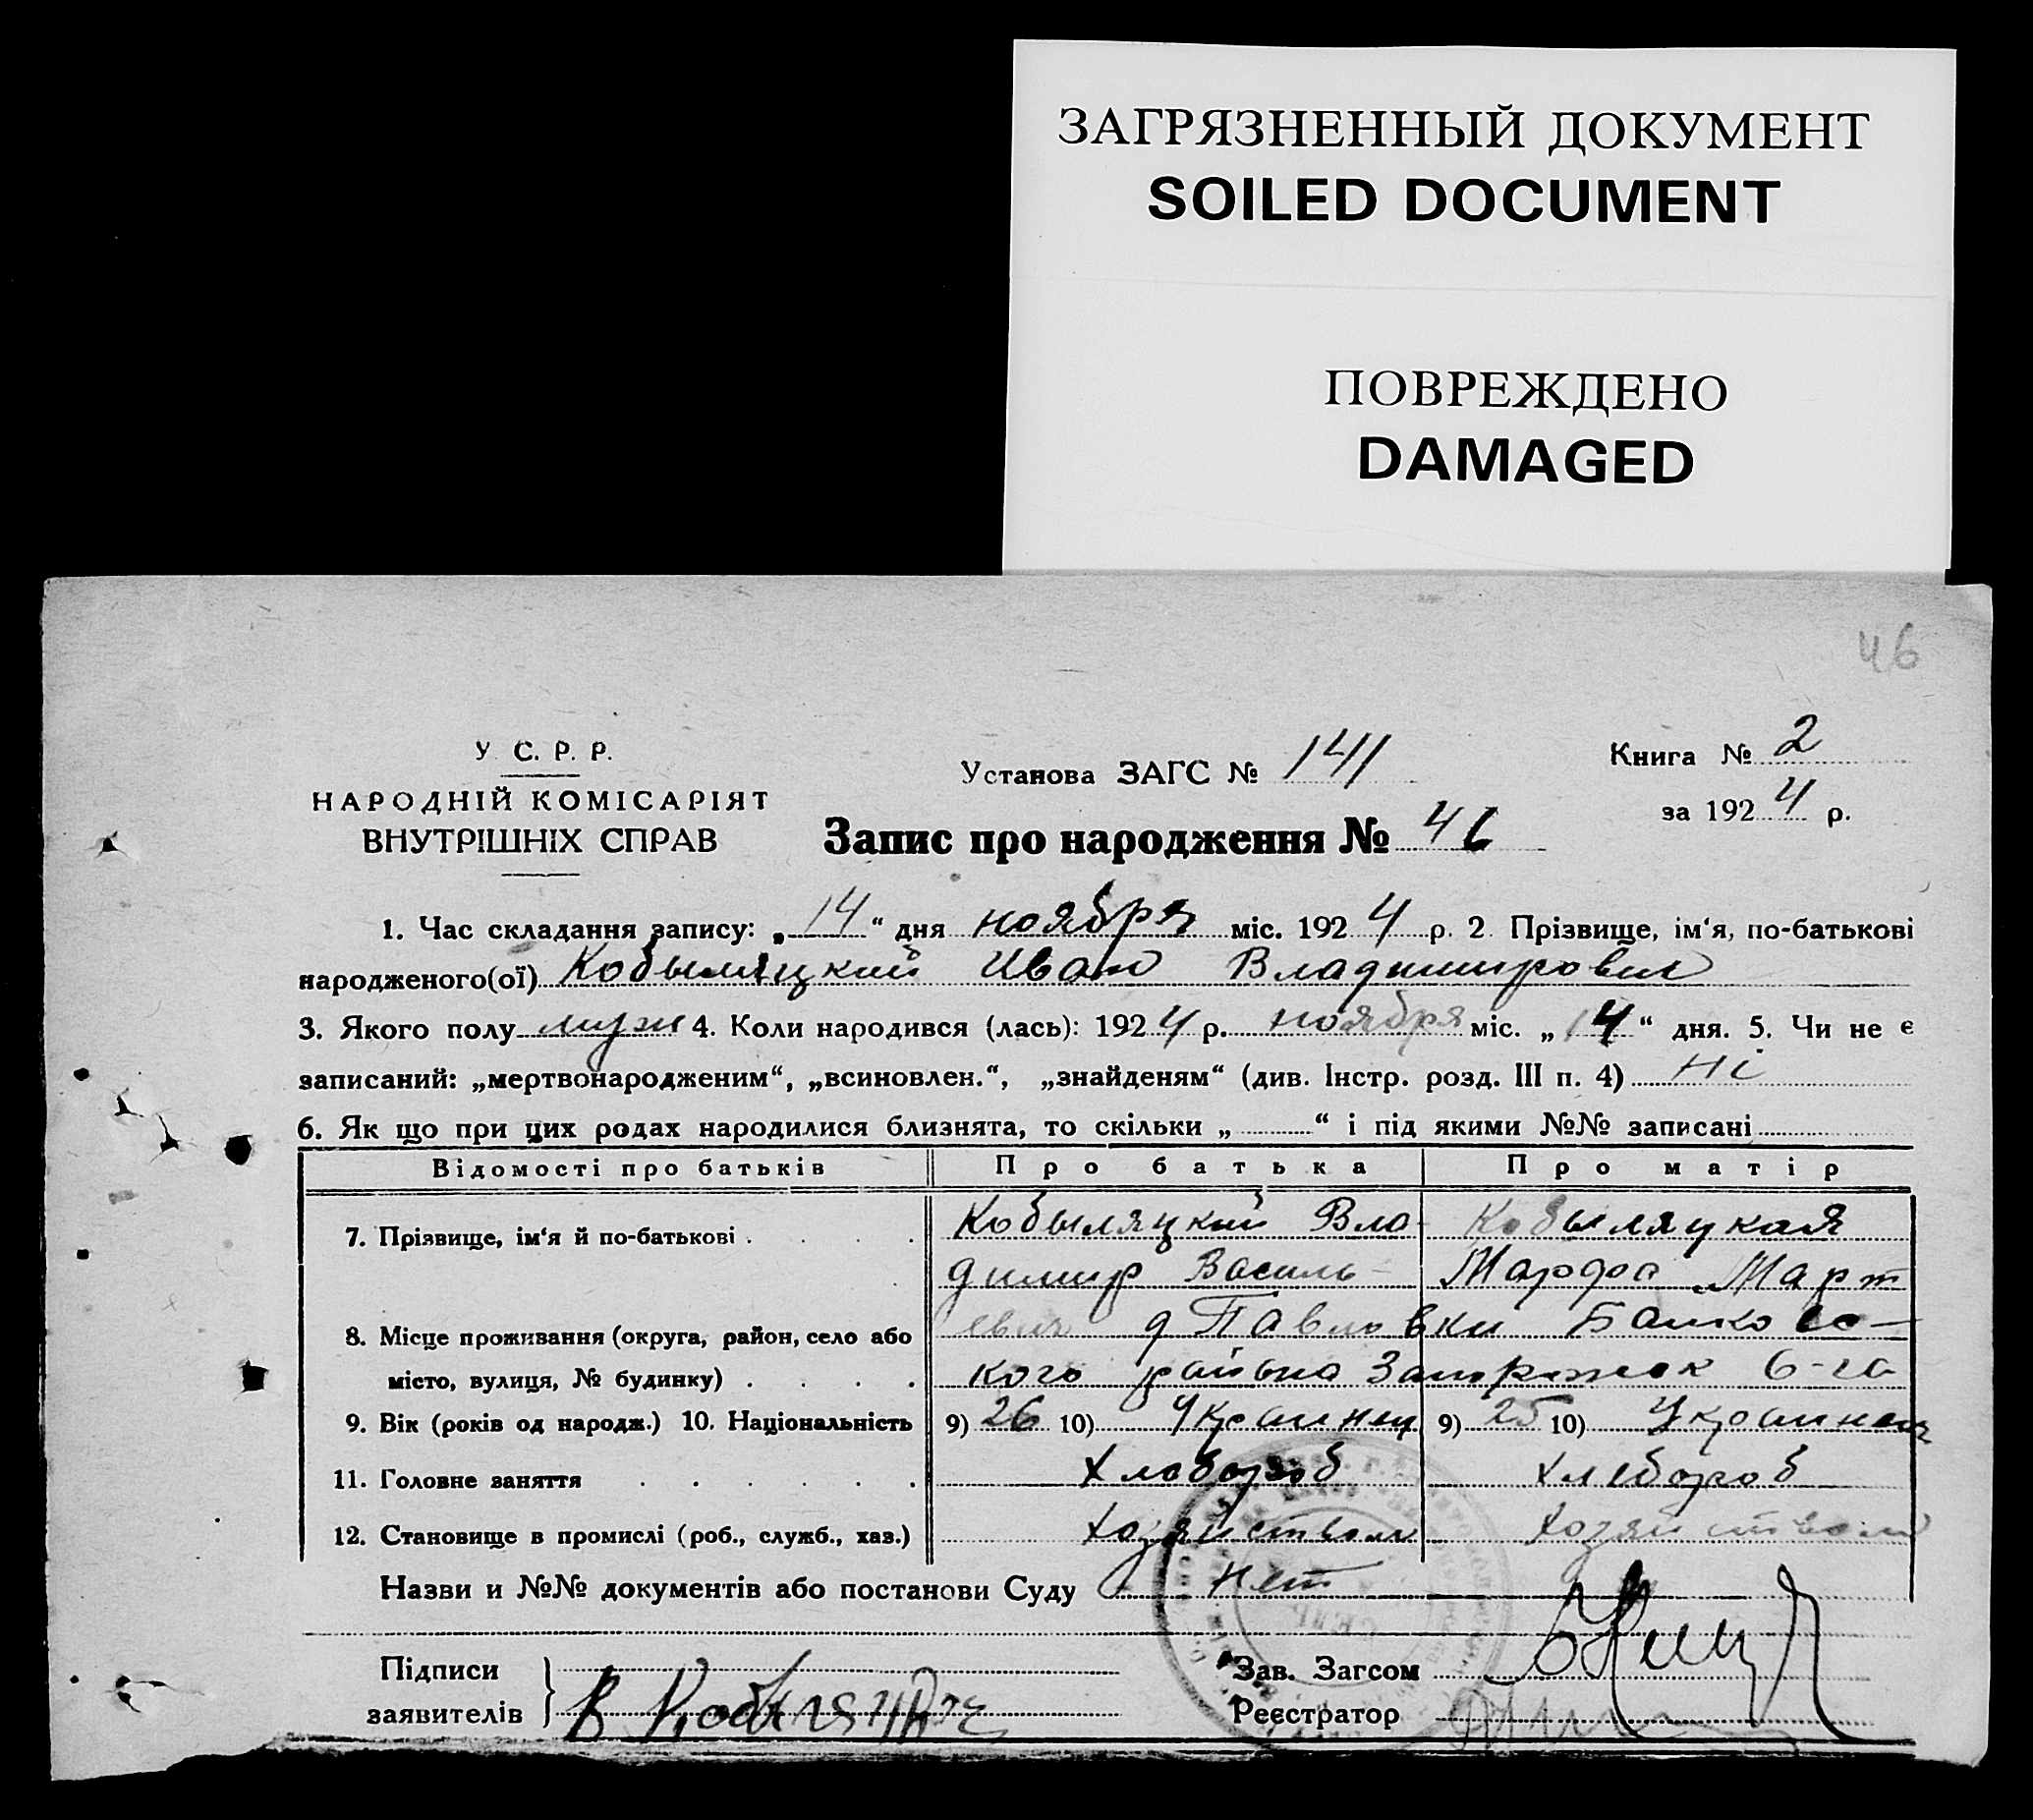 ЗАГРЯЗНЕННЫЙ ДОКУМЕНТ
SOILED DOCUMENT
ПОВРЕЖДЕНО
DAMAGED
46
У. С. Р. Р.
НАРОДНІЙ КОМІСАРІЯТ
ВНУТРІШНІХ СПРАВ
Установа ЗАГС № 141
Книга № 2
за 1924 р.
Запис про народження № 46
1. Час складання запису: „14“ дня ноября міс. 1924 р. 2. Прізвище, ім‘я, по-батькові
народженого(ої) Кобыляцкий Иван Владимирович
3. Якого полу муж 4. Коли народився (лась): 1924 р. ноября міс. „14“ дня. 5. Чи не є
записаний: „мертвонародженим“, „всиновлен.“, „знайденям“ (див. Інстр. розд. III п. 4) Ні
6. Як що при цих родах народилися близнята, то скільки „ “ і під якими №№ записані
Відомості про батьків Про батька Про матір
7. Прізвище, ім‘я й по-батькові . . . . Кобыляцкий Вла- Кобыляцкая
димир Василь- Марфа Март
8. Місце проживання (округа, район, село або евич д Павловки
місто, вулиця, № будинку) . . . . кого района
9. Вік (років од народж.) 10. Національність 9) 26 10) Украинец 9) 25 10)
11. Головне заняття . . . . . . Хлебороб Хлебороб
12. Становище в промислі (роб., служб., хаз.) Хозяйством Хозяйством
Назви и №№ документів або постанови Суду нет
Підписи
заявителів
Зав. Загсом
Реєстратор